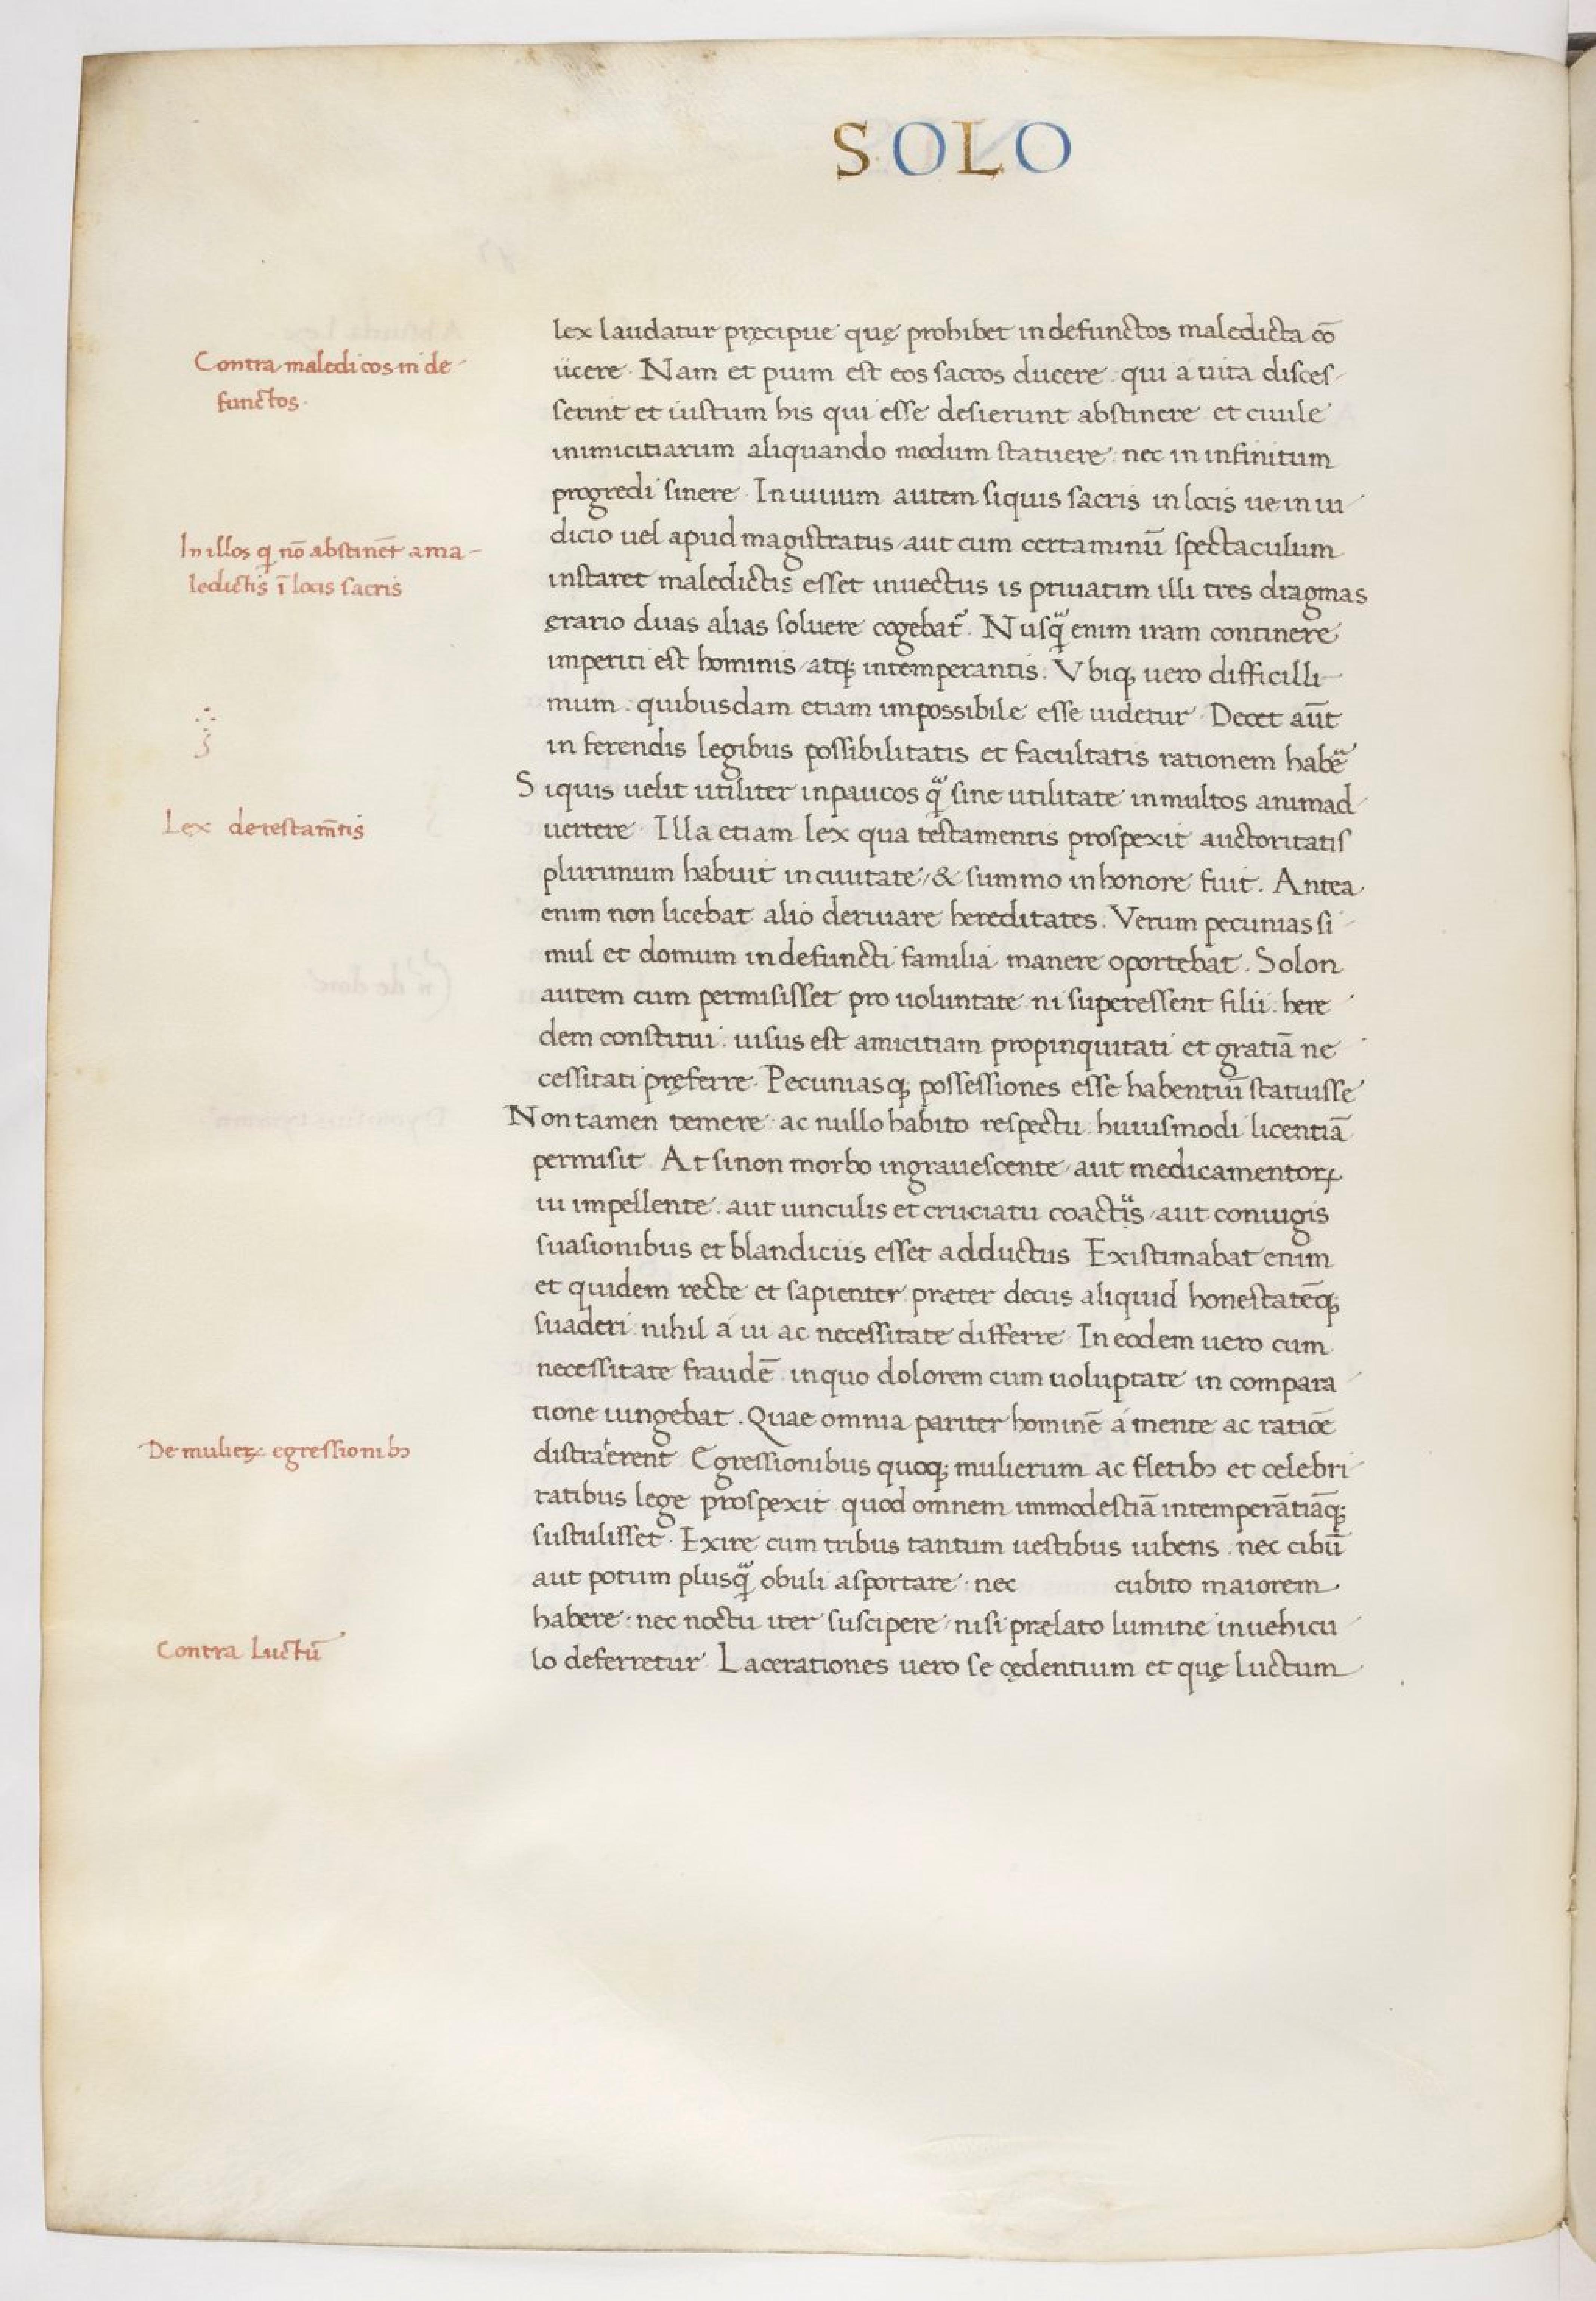 SOLO
lex laudatur pręcipue quę prohibet in defunctos maledicta cō
Contra maledicos in de-
functos.
iicere. Nam et pium est eos sacros ducere. qui a uita disces-
serint et iustum his qui esse desierunt abstinere et ciuile
inimicitiarum aliquando modum statuere: nec in infinitum
progredi sinere. In uiuum autem siquis sacris in locis ue in iu-
In illos q nō abstinēt a ma-
ledictis ī locis sacris
dicio uel apud magistratus, aut cum certaminū spectaculum
instaret maledictis esset inuectus is priuatim illi tres dragmas
ęrario duas alias soluere cogebat᷑. Nusq̈ enim iram continere
imperiti est hominis, atq; intemperantis. Vbiq; uero difficilli-
mum: quibusdam etiam impossibile esse uidetur. Decet aūt
in ferendis legibus possibilitatis et facultatis rationem habē
Siquis uelit utiliter in paucos q̈ sine utilitate in multos animad-
Lex de testam̄tis
uertere. Illa etiam lex qua testamentis prospexit auctoritatis
plurimum habuit in ciuitate, & summo in honore fuit. Antea
enim non licebat alio deriuare hereditates. Verum pecunias si-
mul et domum in defuncti familia manere oportebat. Solon
autem cum permisisset pro uoluntate ni superessent filii: here-
dem constitui: uisus est amicitiam propinquitati et gratiā ne-
cessitati pręferre. Pecuniasq; possessiones esse habentiū statuisse
Non tamen temere: ac nullo habito respectu: huiusmodi licentiā
permisit. At si non morbo ingrauescente, aut medicamentoꝝ
ui impellente. aut uinculis et cruciatu coactus, aut coniugis
suasionibus et blandiciis esset adductus. Existimabat enim
et quidem recte et sapienter præter decus aliquid honestatēq;
suaderi nihil á ui ac necessitate differre. In eodem uero cum
necessitate fraudē. in quo dolorem cum uoluptate in compara-
tione iungebat. Quae omnia pariter hominē á mente ac ratiōe
De mulieꝝ egressionibꝰ
distraerent. Egressionibus quoq; mulierum ac fletibꝰ et celebri-
tatibus lege prospexit quod omnem immodestiā intemperātiāq;
sustulisset. Exire cum tribus tantum uestibus iubens. nec cibū
aut potum plusq̈ obuli asportare: nec cubito maiorem
habere: nec noctu iter suscipere, nisi prælato lumine in uehicu-
Contra Luctū
lo deferretur. Lacerationes uero se cędentium et quę luctum